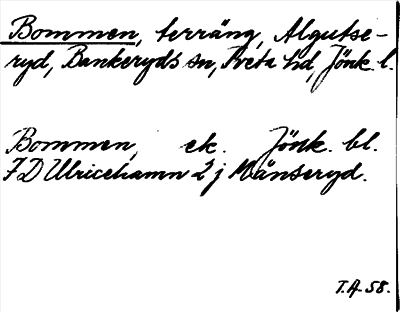 Bommen, terräng, Algutse-
ryd, Bankeryds sn, Tveta hd, Jönk. l.
Bommen, ek. Jönk. bl.
7D Ulricehamn 2 j Månseryd.
T.A. 58.